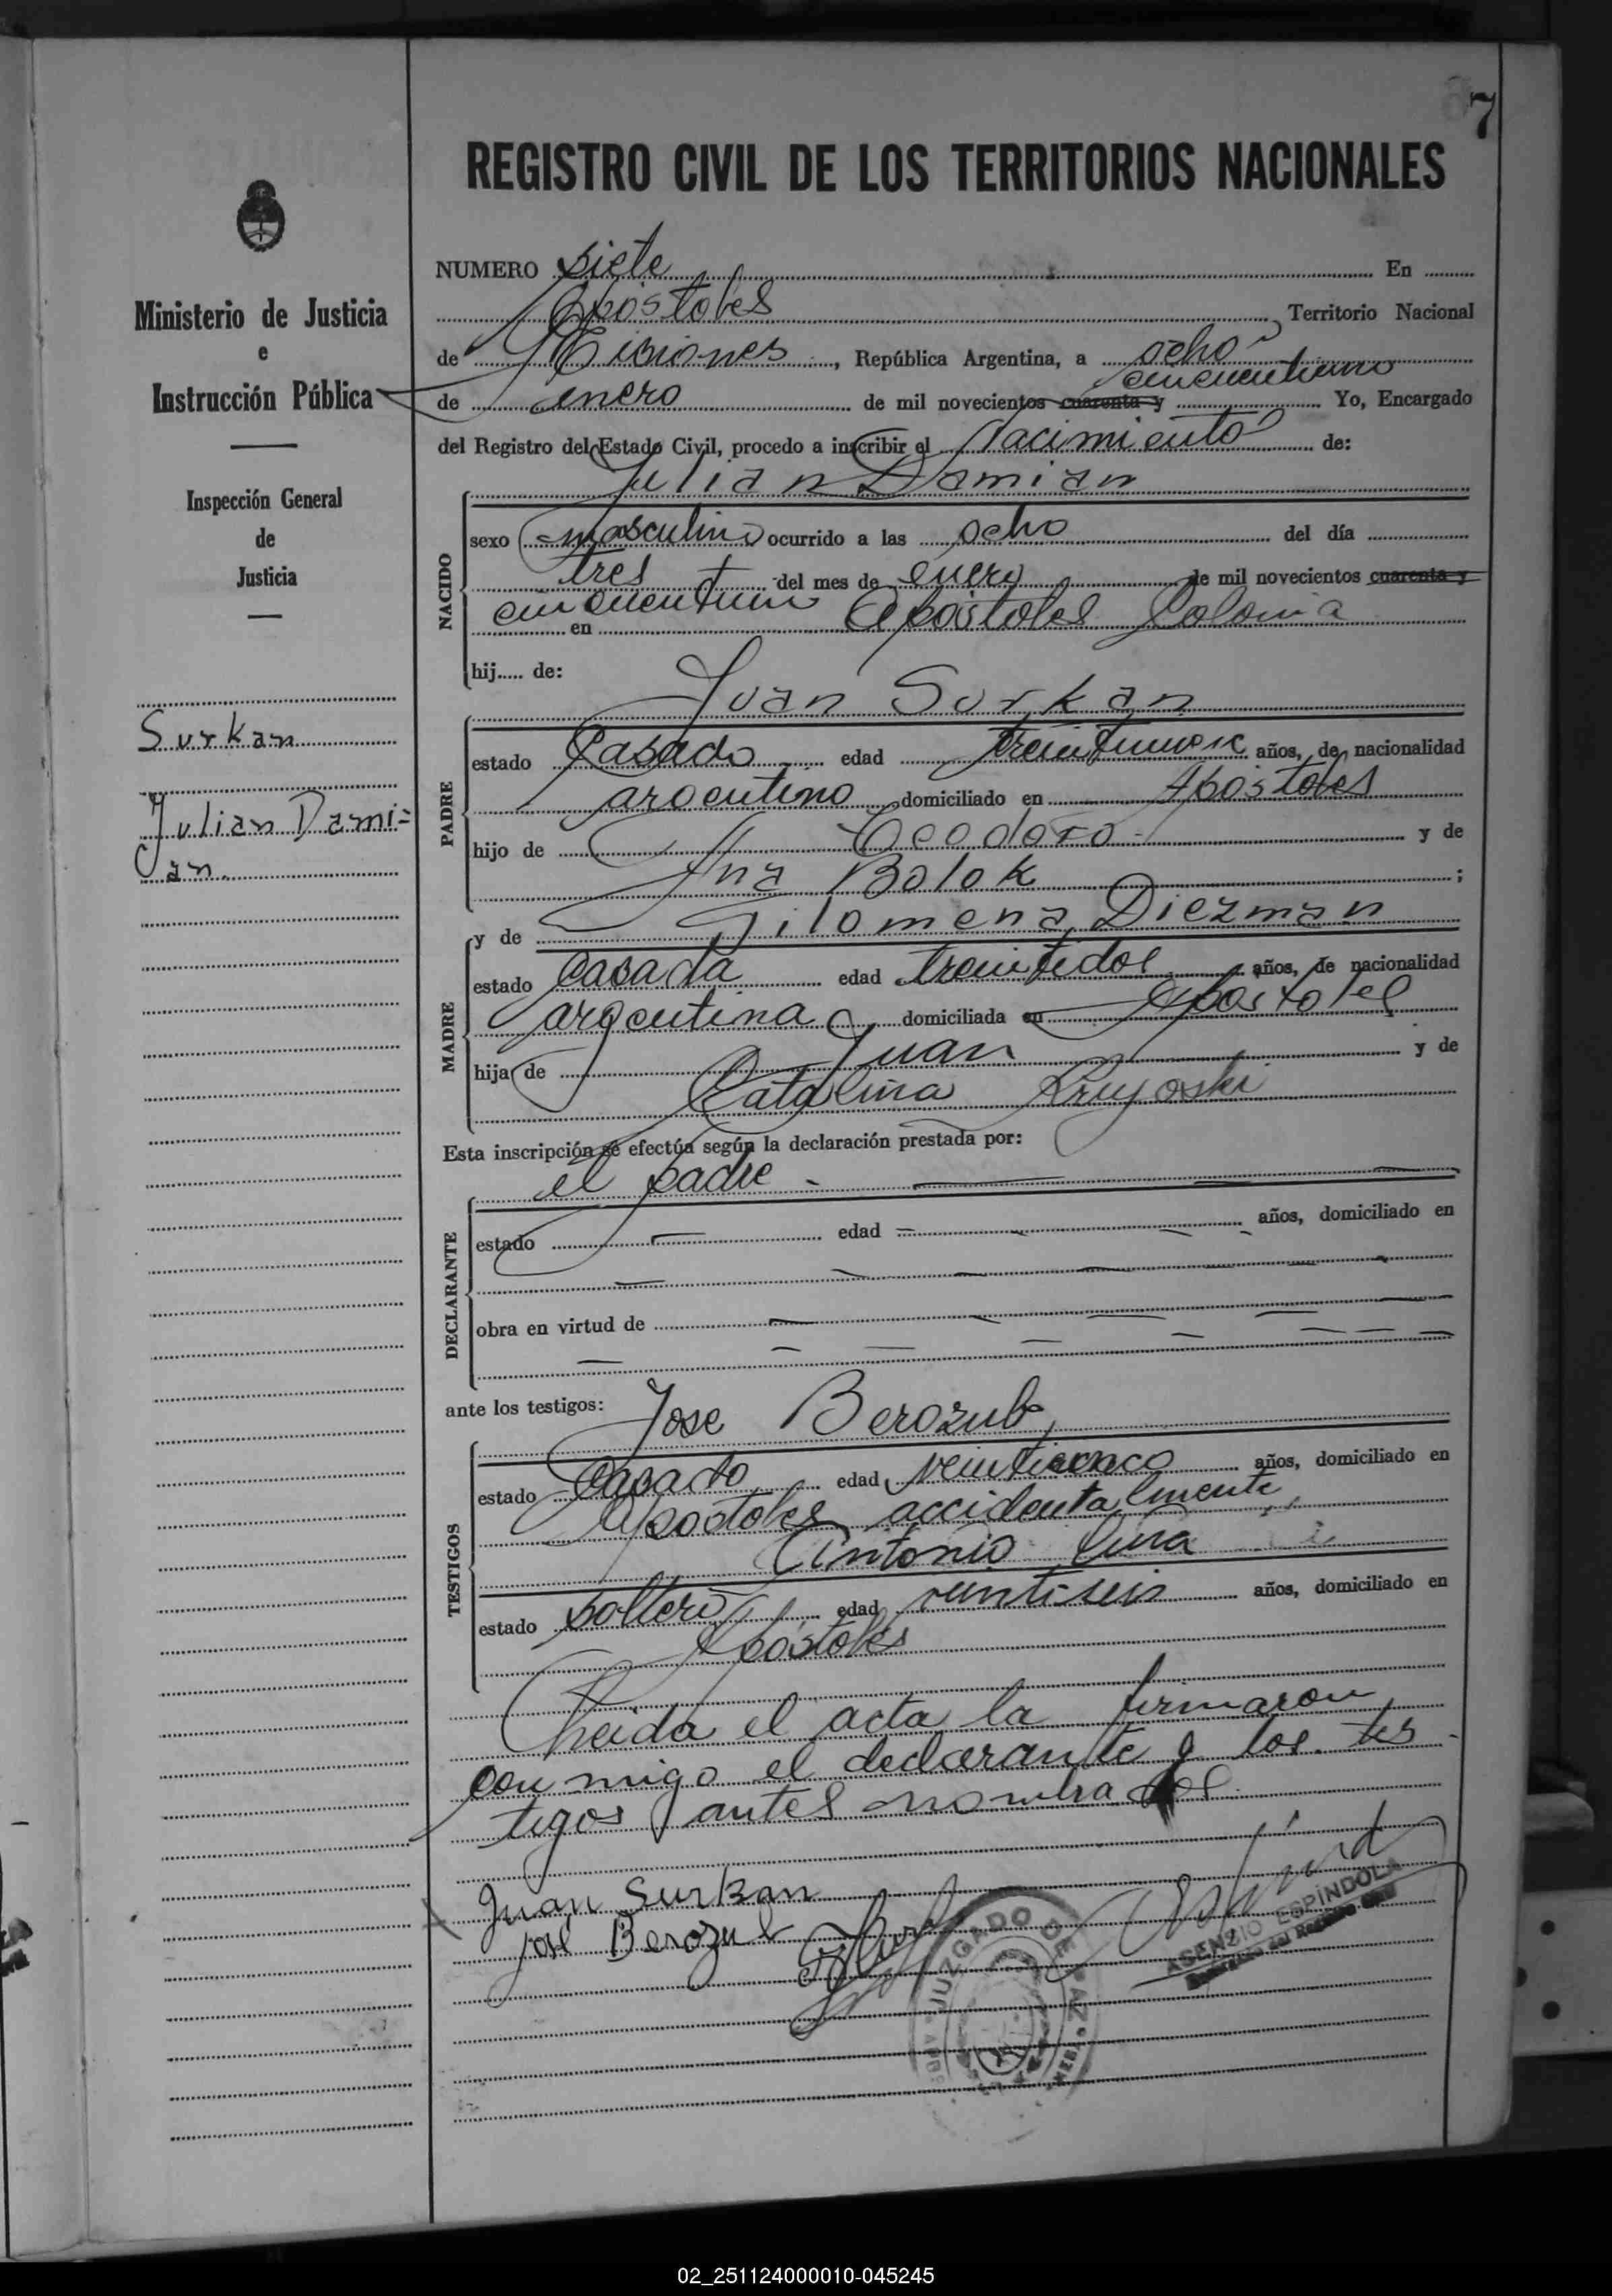 7
REGISTRO CIVIL DE LOS TERRITORIOS NACIONALES
Ministerio de Justicia
e
Instrucción Pública
Inspección General
de
Justicia
Surkan
Julian Dami=
an.
NUMERO siete En
Apóstoles Territorio Nacional
de Misiones, República Argentina, a ocho
cincuentiuno
de enero de mil novecientos cuarenta y Yo, Encargado
del Registro del Estado Civil, procedo a inscribir el Nacimiento de:
Julian Damian
NACIDO
sexo masculino ocurrido a las ocho del día
tres del mes de enero de mil novecientos cuarenta y
cincuentiun en Apóstoles Colonia
hij..... de:
Juan Surkan
PADRE
estado Casado edad años, de nacionalidad
argentino domiciliado en Apostoles
hijo de Teodoro y de
Ana Bolok ;
y de Filomena Diezman
MADRE
estado Casada edad treintidos años, de nacionalidad
argentina domiciliada en Apostoles
hija de Juan y de
Catalina
Esta inscripción se efectúa según la declaración prestada por:
el padre
DECLARANTE
estado edad años, domiciliado en
obra en virtud de
ante los testigos: Jose Berozub,
TESTIGOS
estado Casado edad veinticinco años, domiciliado en
Apostoles accidentalmente,
Antonio Luna
estado soltero edad veintiseis años, domiciliado en
Apóstoles
Leida el acta la firmaron
con migo el declarante y los tes
tigos antes nombrados
Juan Surkan
José Berozub
JUZGADO DE PAZ
ASENCIO ESPINDOLA
Encargado del Registro Civil
02_251124000010-045245